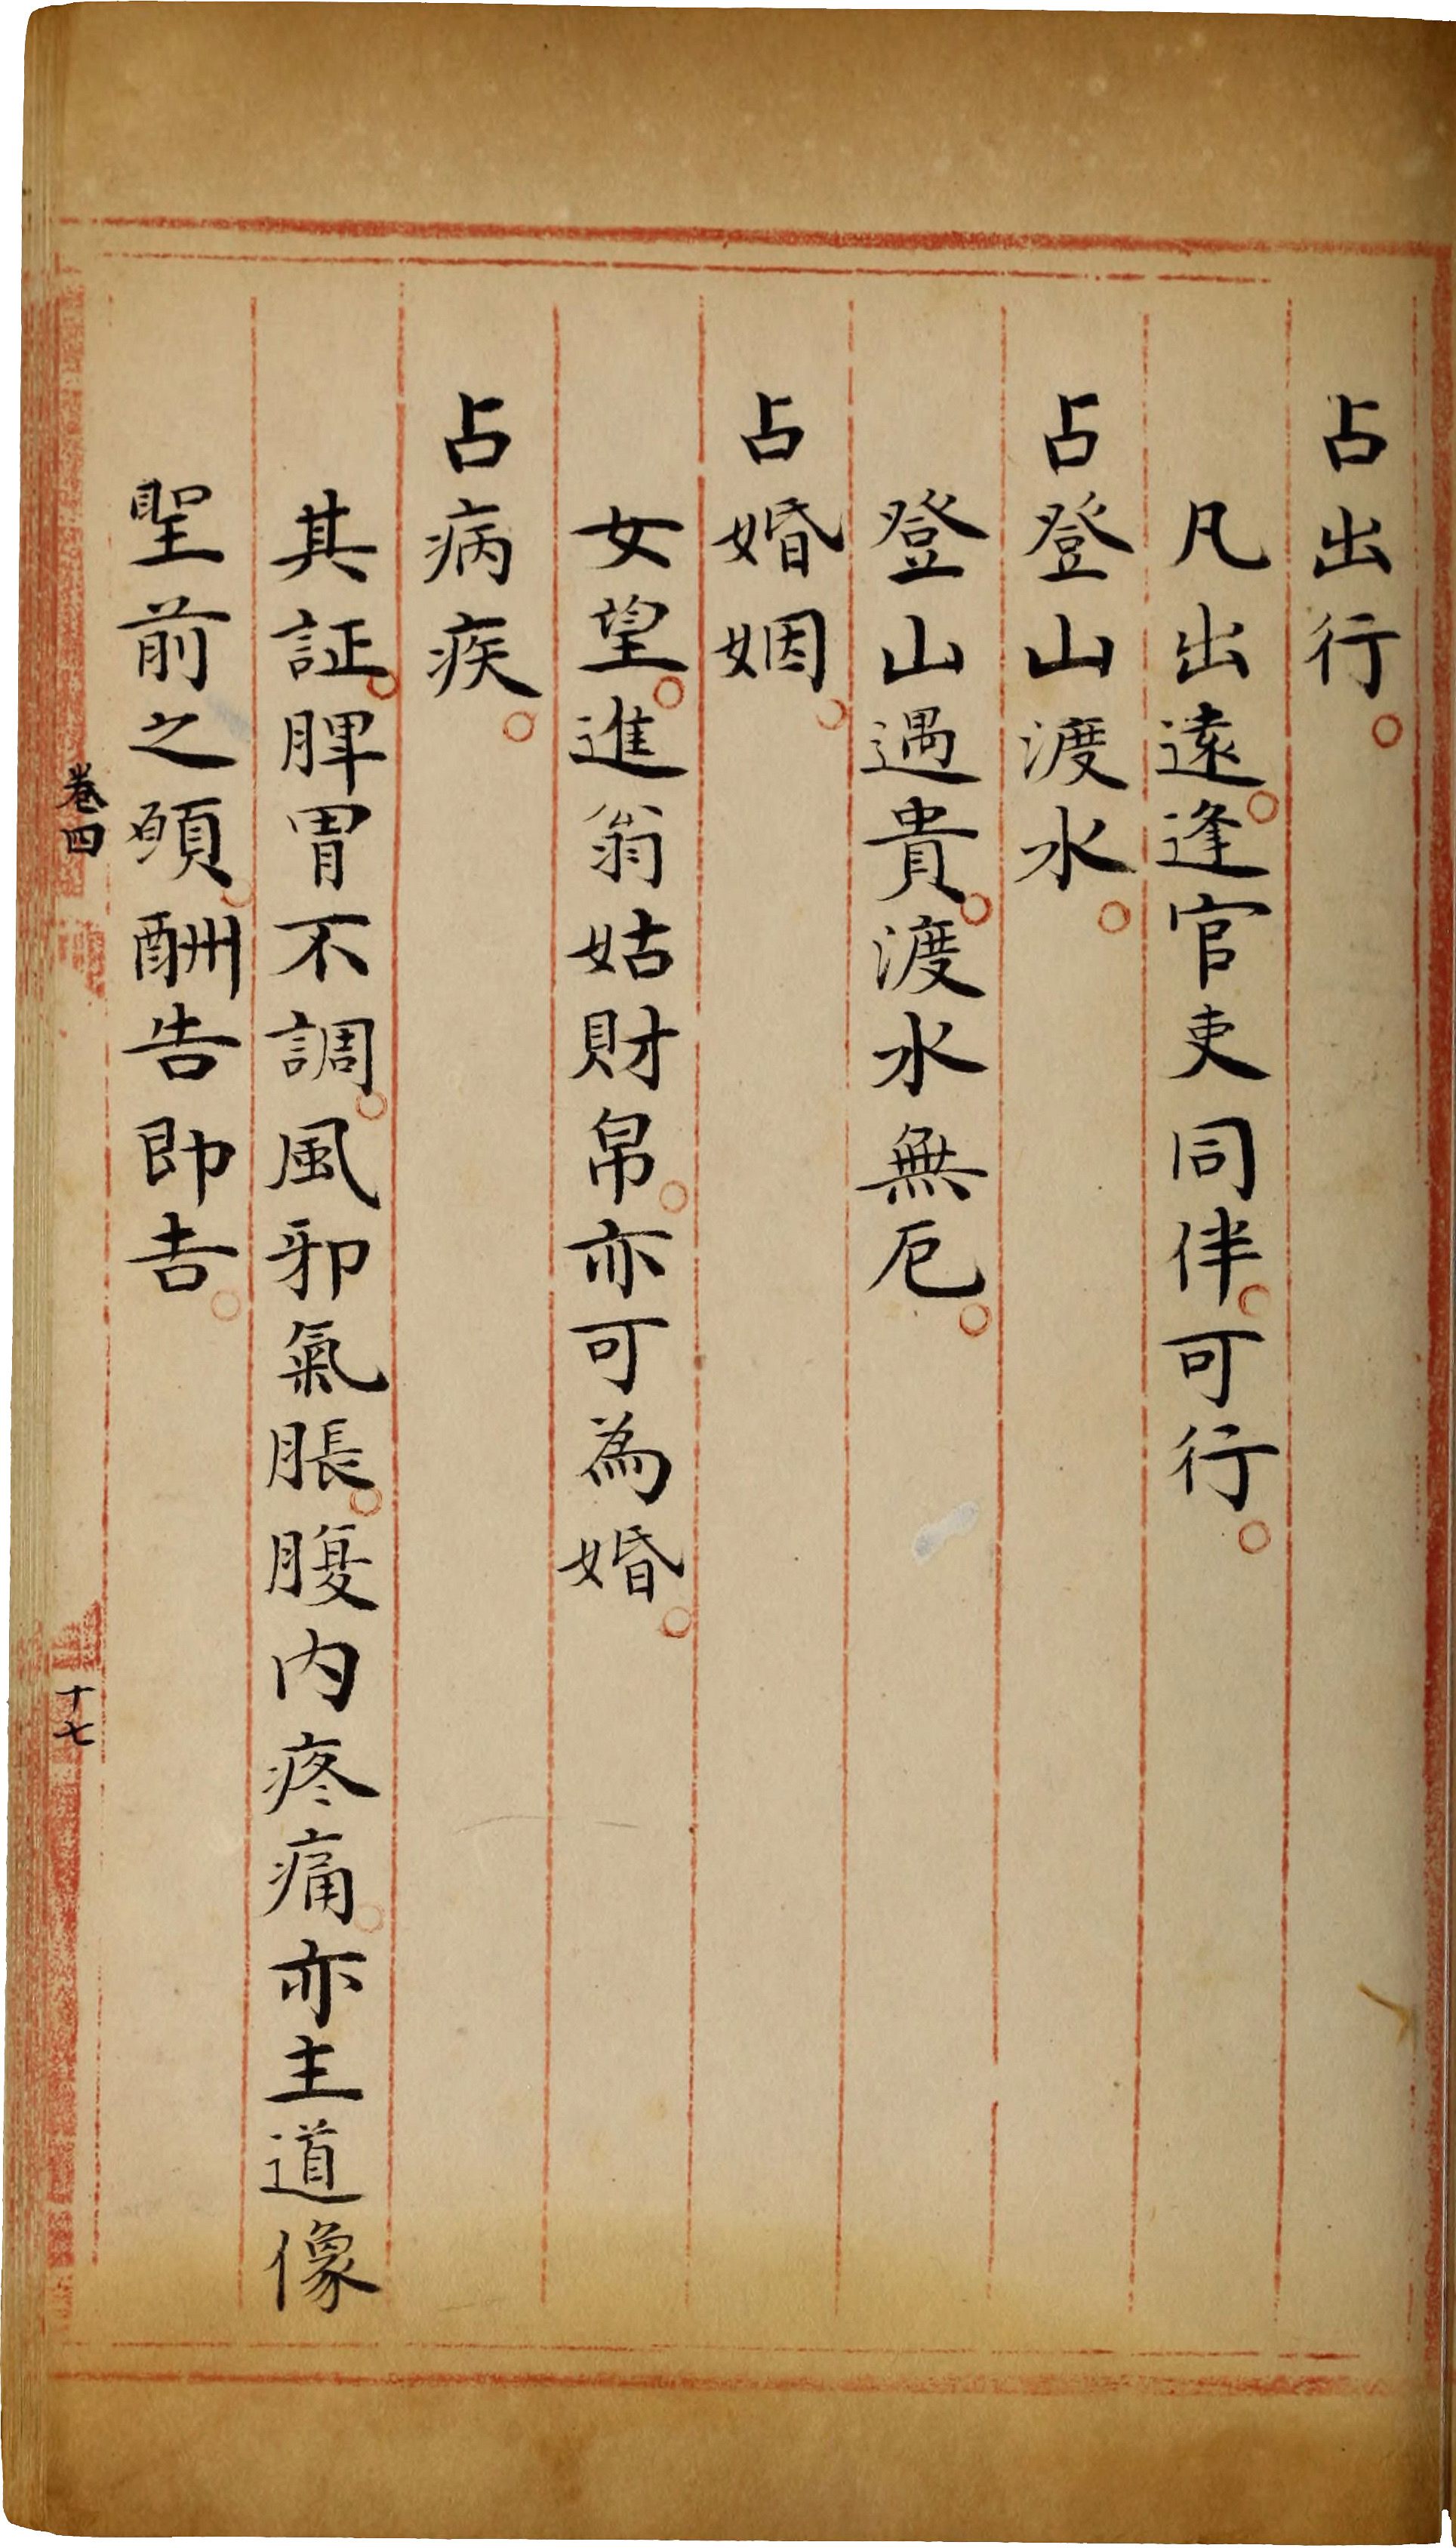 占出行。
凡出遠。逢官吏同伴。可行。
占登山渡水。
登山遇貴。渡水無厄。
占婚姻。
女望。進翁姑財帛。亦可為婚。
占病疾。
其証。脾胃不調。風邪氣脹。腹内疼痛。亦主道像
聖前之願。酬告即吉。
卷四
十七